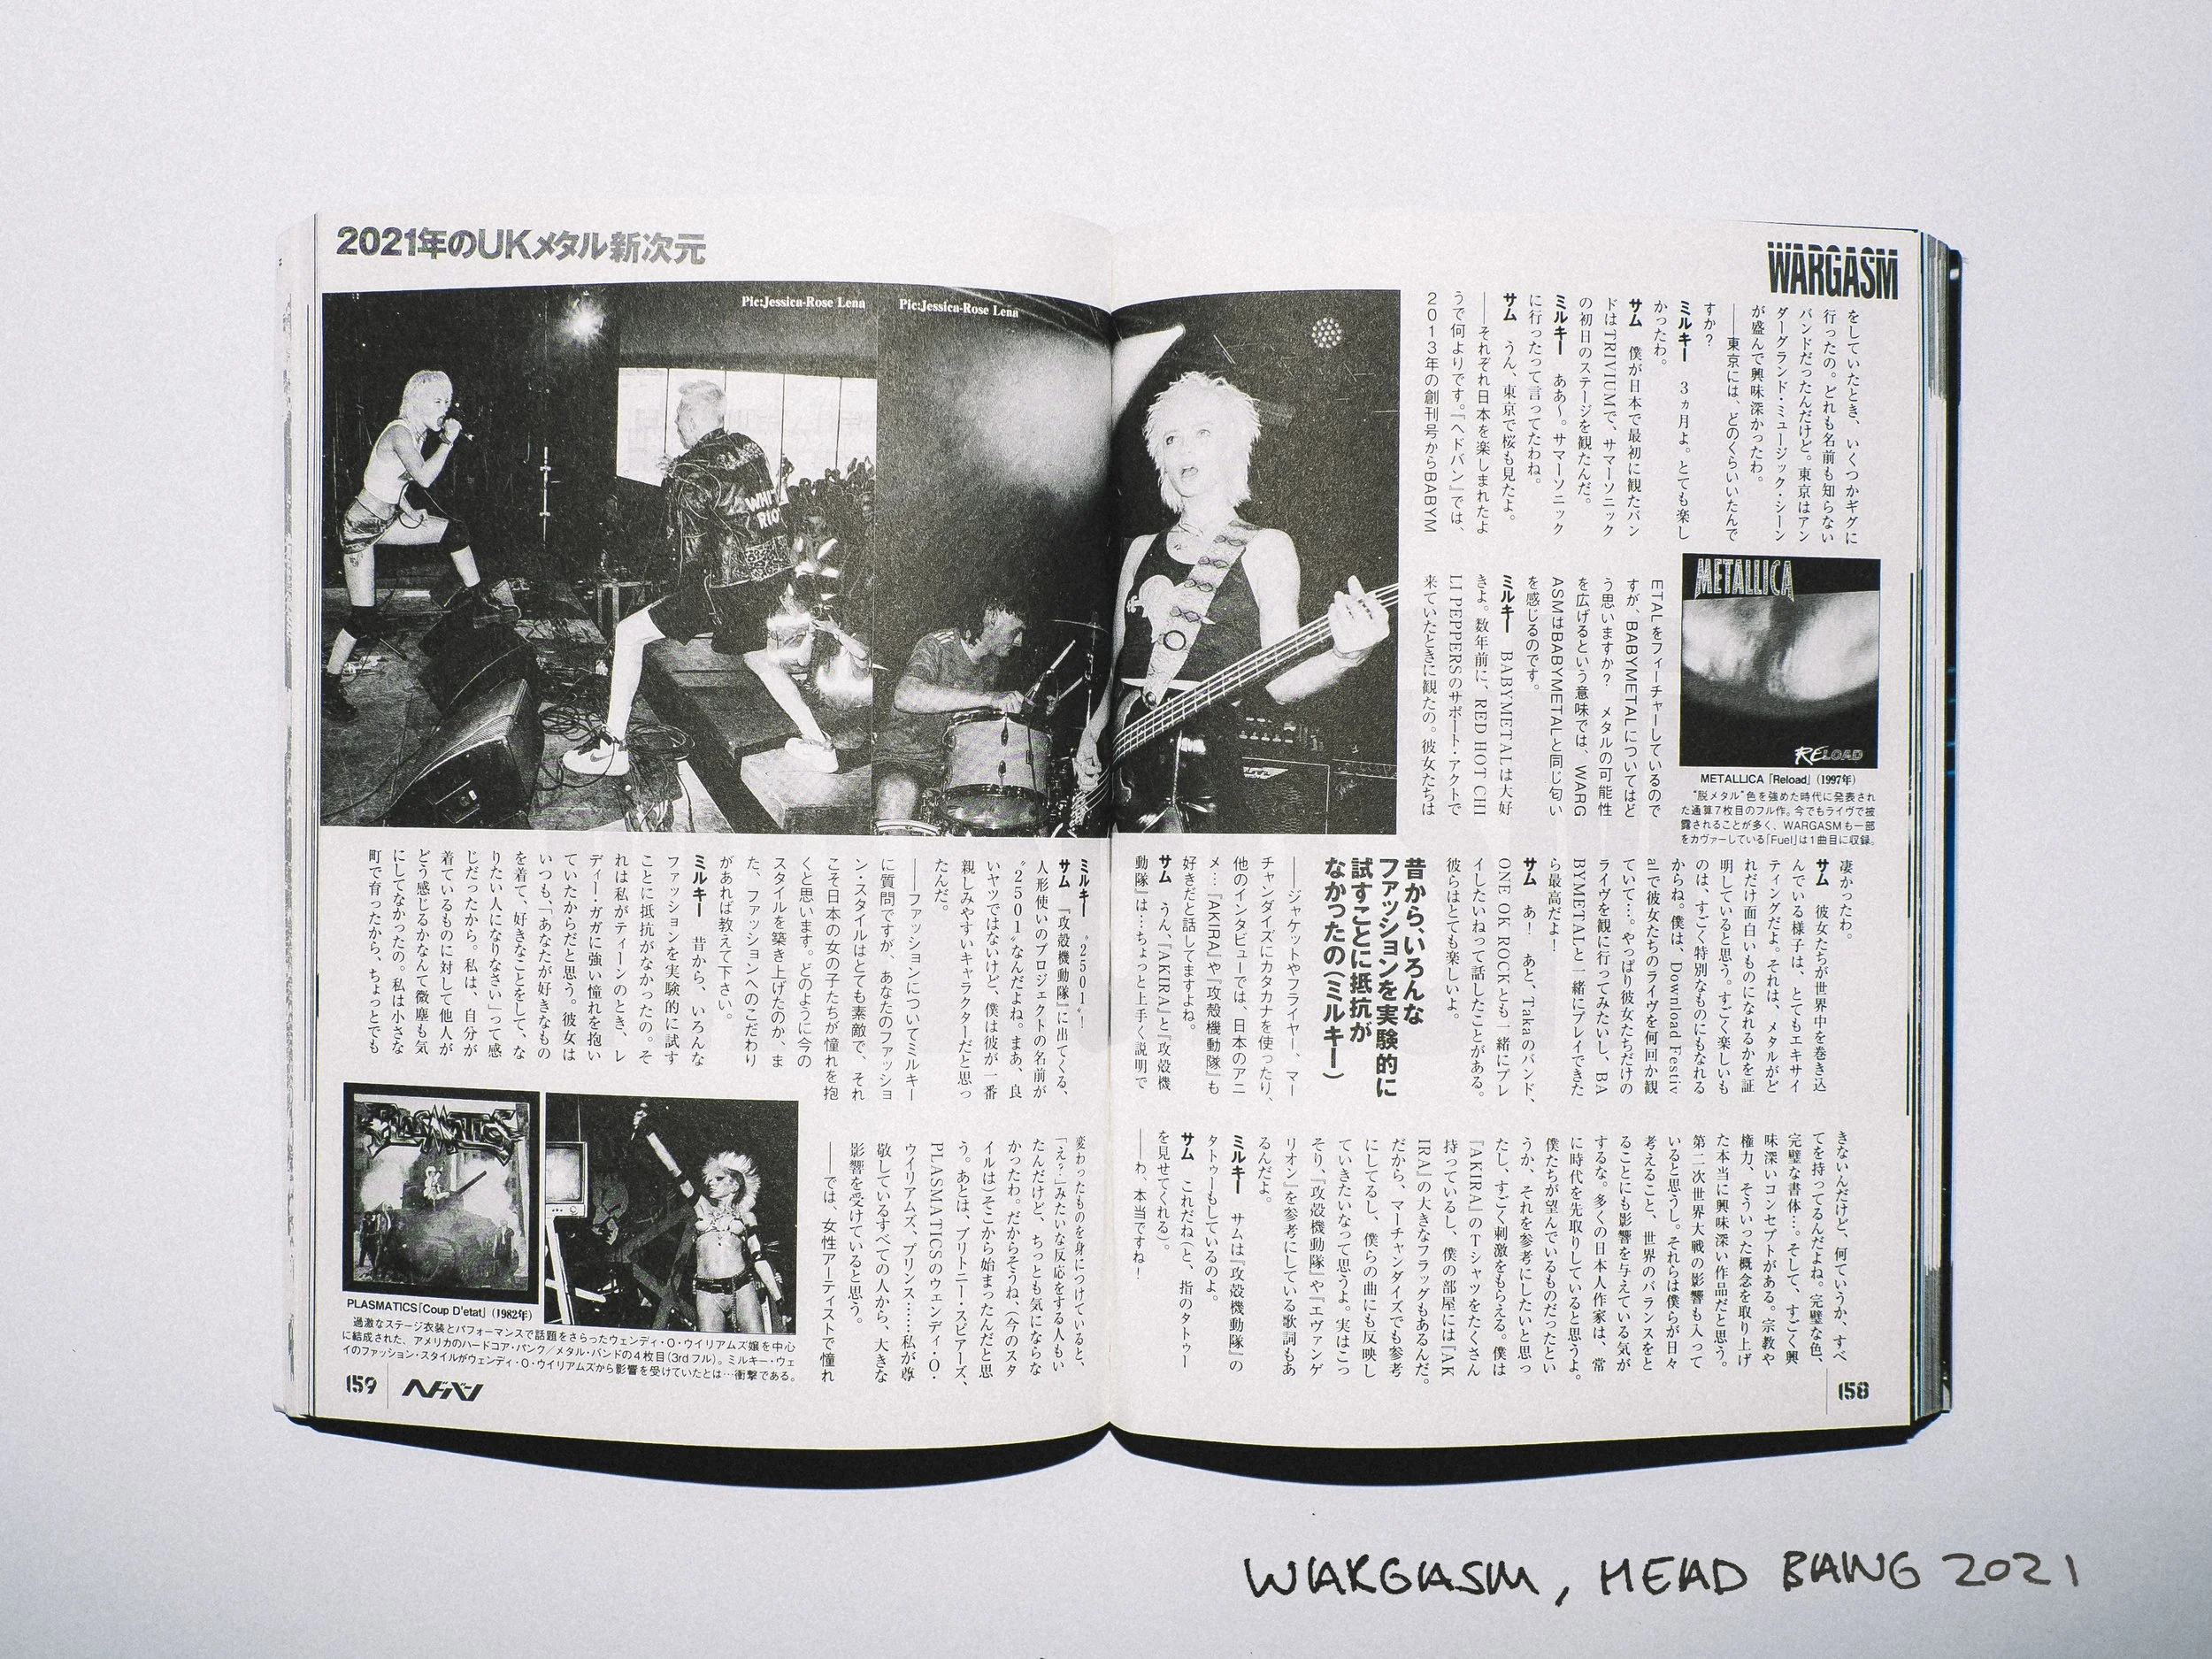 WARGASM
をしていたとき、いくつかギグに
行ったの。どれも名前も知らない
バンドだったんだけど。東京はアン
ダーグランド・ミュージック・シーン
が盛んで興味深かったわ。
――東京には、どのくらいいたんで
すか？
ミルキー　3ヵ月よ。とても楽し
かったわ。
サム　僕が日本で最初に観たバン
ドはTRIVIUMで、サマーソニック
の初日のステージを観たんだ。
ミルキー　ああ〜。サマーソニック
に行ったって言ってたわね。
サム　うん、東京で桜も見たよ。
――それぞれ日本を楽しまれたよ
うで何よりです。『ヘドバン』では、
2013年の創刊号からBABYM
METALLICA
RELOAD
METALLICA「Reload」（1997年）
“脱メタル”色を強めた時代に発表され
た通算7枚目のフル作。今でもライヴで披
露されることが多く、WARGASMも一部
をカヴァーしている「Fuel」は1曲目に収録。
ETALをフィーチャーしているので
すが、BABYMETALについてはど
う思いますか？　メタルの可能性
を広げるという意味では、WARG
ASMはBABYMETALと同じ匂い
を感じるのです。
ミルキー　BABYMETALは大好
きよ。数年前に、RED HOT CHI
LI PEPPERSのサポート・アクトで
来ていたときに観たの。彼女たちは
凄かったわ。
サム　彼女たちが世界中を巻き込
んでいる様子は、とてもエキサイ
ティングだよ。それは、メタルがど
れだけ面白いものになれるかを証
明していると思う。すごく楽しいも
のは、すごく特別なものにもなれる
からね。僕は、Download Festiv
alで彼女たちのライヴを何回か観
ていて…。やっぱり彼女たちだけの
ライヴを観に行ってみたいし、BA
BYMETALと一緒にプレイできた
ら最高だよ！
サム　あ！　あと、Takaのバンド、
ONE OK ROCKとも一緒にプレ
イしたいねって話したことがある。
彼らはとても楽しいよ。
昔から、いろんな
ファッションを実験的に
試すことに抵抗が
なかったの（ミルキー）
――ジャケットやフライヤー、マー
チャンダイズにカタカナを使ったり、
他のインタビューでは、日本のアニ
メ…『AKIRA』や『攻殻機動隊』も
好きだと話してますよね。
サム　うん、『AKIRA』と『攻殻機
動隊』は…ちょっと上手く説明で
きないんだけど、何ていうか、すべ
てを持ってるんだよね。完璧な色、
完璧な書体…。そして、すごく興
味深いコンセプトがある。宗教や
権力、そういった概念を取り上げ
た本当に興味深い作品だと思う。
第二次世界大戦の影響も入って
いると思うし。それらは僕らが日々
考えること、世界のバランスをと
ることにも影響を与えている気が
するな。多くの日本人作家は、常
に時代を先取りしていると思うよ。
僕たちが望んでいるものだったとい
うか、それを参考にしたいと思っ
たし、すごく刺激をもらえる。僕は
『AKIRA』のTシャツをたくさん
持っているし、僕の部屋には『AK
IRA』の大きなフラッグもあるんだ。
だから、マーチャンダイズでも参考
にしてるし、僕らの曲にも反映し
ていきたいなって思うよ。実はこっ
そり、『攻殻機動隊』や『エヴァンゲ
リオン』を参考にしている歌詞もあ
るんだよ。
ミルキー　サムは『攻殻機動隊』の
タトゥーもしているのよ。
サム　これだね（と、指のタトゥー
を見せてくれる）。
――わ、本当ですね！
158
2021年のUKメタル新次元
Pic:Jessica-Rose Lena
Pic:Jessica-Rose Lena
WHITE
RIOT
ミルキー　〝2501〟！
サム　『攻殻機動隊』に出てくる、
人形使いのプロジェクトの名前が
〝2501〟なんだよね。まあ、良
いヤツではないけど、僕は彼が一番
親しみやすいキャラクターだと思っ
たんだ。
――ファッションについてミルキー
に質問ですが、あなたのファッショ
ン・スタイルはとても素敵で、それ
こそ日本の女の子たちが憧れを抱
くと思います。どのように今の
スタイルを築き上げたのか、ま
た、ファッションへのこだわり
があれば教えて下さい。
ミルキー　昔から、いろんな
ファッションを実験的に試す
ことに抵抗がなかったの。そ
れは私がティーンのとき、レ
ディー・ガガに強い憧れを抱い
ていたからだと思う。彼女は
いつも、「あなたが好きなもの
を着て、好きなことをして、な
りたい人になりなさい」って感
じだったから。私は、自分が
着ているものに対して他人が
どう感じるかなんて微塵も気
にしてなかったの。私は小さな
町で育ったから、ちょっとでも
変わったものを身につけていると、
「え？」みたいな反応をする人もい
たんだけど、ちっとも気にならな
かったわ。だからそうね、（今のスタ
イルは）そこから始まったんだと思
う。あとは、ブリトニー・スピアーズ、
PLASMATICSのウェンディ・O・
ウイリアムズ、プリンス……私が尊
敬しているすべての人から、大きな
影響を受けていると思う。
――では、女性アーティストで憧れ
PLASMATICS
PLASMATICS「Coup D'etat」（1982年）
過激なステージ衣装とパフォーマンスで話題をさらったウェンディ・O・ウイリアムズ嬢を中心
に結成された、アメリカのハードコア・パンク／メタル・バンドの4枚目（3rdフル）。ミルキー・ウェ
イのファッション・スタイルがウェンディ・O・ウイリアムズから影響を受けていたとは…衝撃である。
159 ヘドバン
WARGASM, HEAD BANG 2021